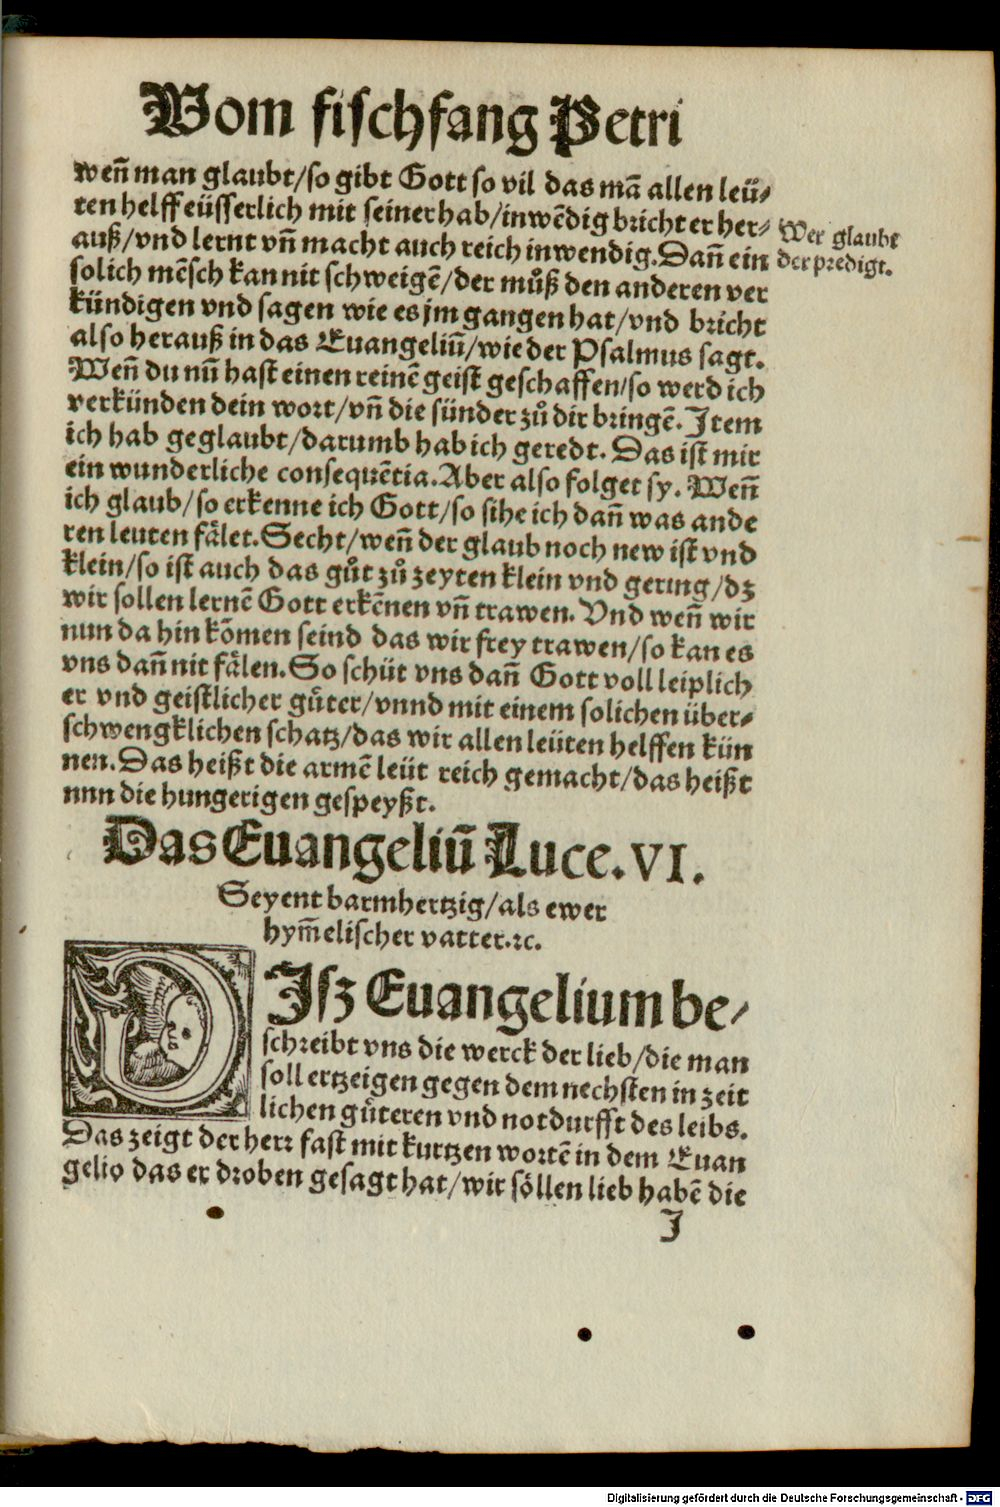 Vom fischfang Petri
weñ man glaubt/so gibt Gott so vil das mā allen leü⸗
ten helff eüsserlich mit seiner hab/inwēdig bricht er her⸗
auß/vnd lernt vñ macht auch reich inwendig. Dañ ein
solich mēsch kan nit schweigē/der můß den anderen ver
kündigen vnd sagen wie es jm gangen hat/vnd bricht
also herauß in das Euangeliū/wie der Psalmus sagt.
Weñ du nū hast einen reinē geist geschaffen/so werd ich
verkünden dein wort/vñ die sünder zů dir bringē. Item
ich hab geglaubt/darumb hab ich geredt. Das ist mir
ein wunderliche consequētia. Aber also folget sy. Weñ
ich glaub/so erkenne ich Gott/so sihe ich dañ was ande
ren leuten fälet. Secht/weñ der glaub noch new ist vnd
klein/so ist auch das gůt zů zeyten klein vnd gering/dz
wir sollen lernē Gott erkēnen vñ trawen. Vnd weñ wir
nun da hin kōmen seind das wir frey trawen/so kan es
vns dañ nit fälen. So schüt vns dañ Gott voll leiplich
er vnd geistlicher gůter/vnnd mit einem solichen über⸗
schwengklichen schatz/das wir allen leüten helffen kün
nen. Das heißt die armē leüt reich gemacht/das heißt
nnn die hungerigen gespeyßt.
Wer glaubt
der predigt.
Das Euangeliū Luce. VI.
Seyent barmhertzig/als ewer
hym̄elischer vatter.ꝛc.
DIsz Euangelium be⸗
schreibt vns die werck der lieb/die man
soll ertzeigen gegen dem nechsten in zeit
lichen gůteren vnd notdurfft des leibs.
Das zeigt der herr fast mit kurtzen wortē in dem Euan
gelio das er droben gesagt hat/wir söllen lieb habē die
J
Digitalisierung gefördert durch die Deutsche Forschungsgemeinschaft - DFG